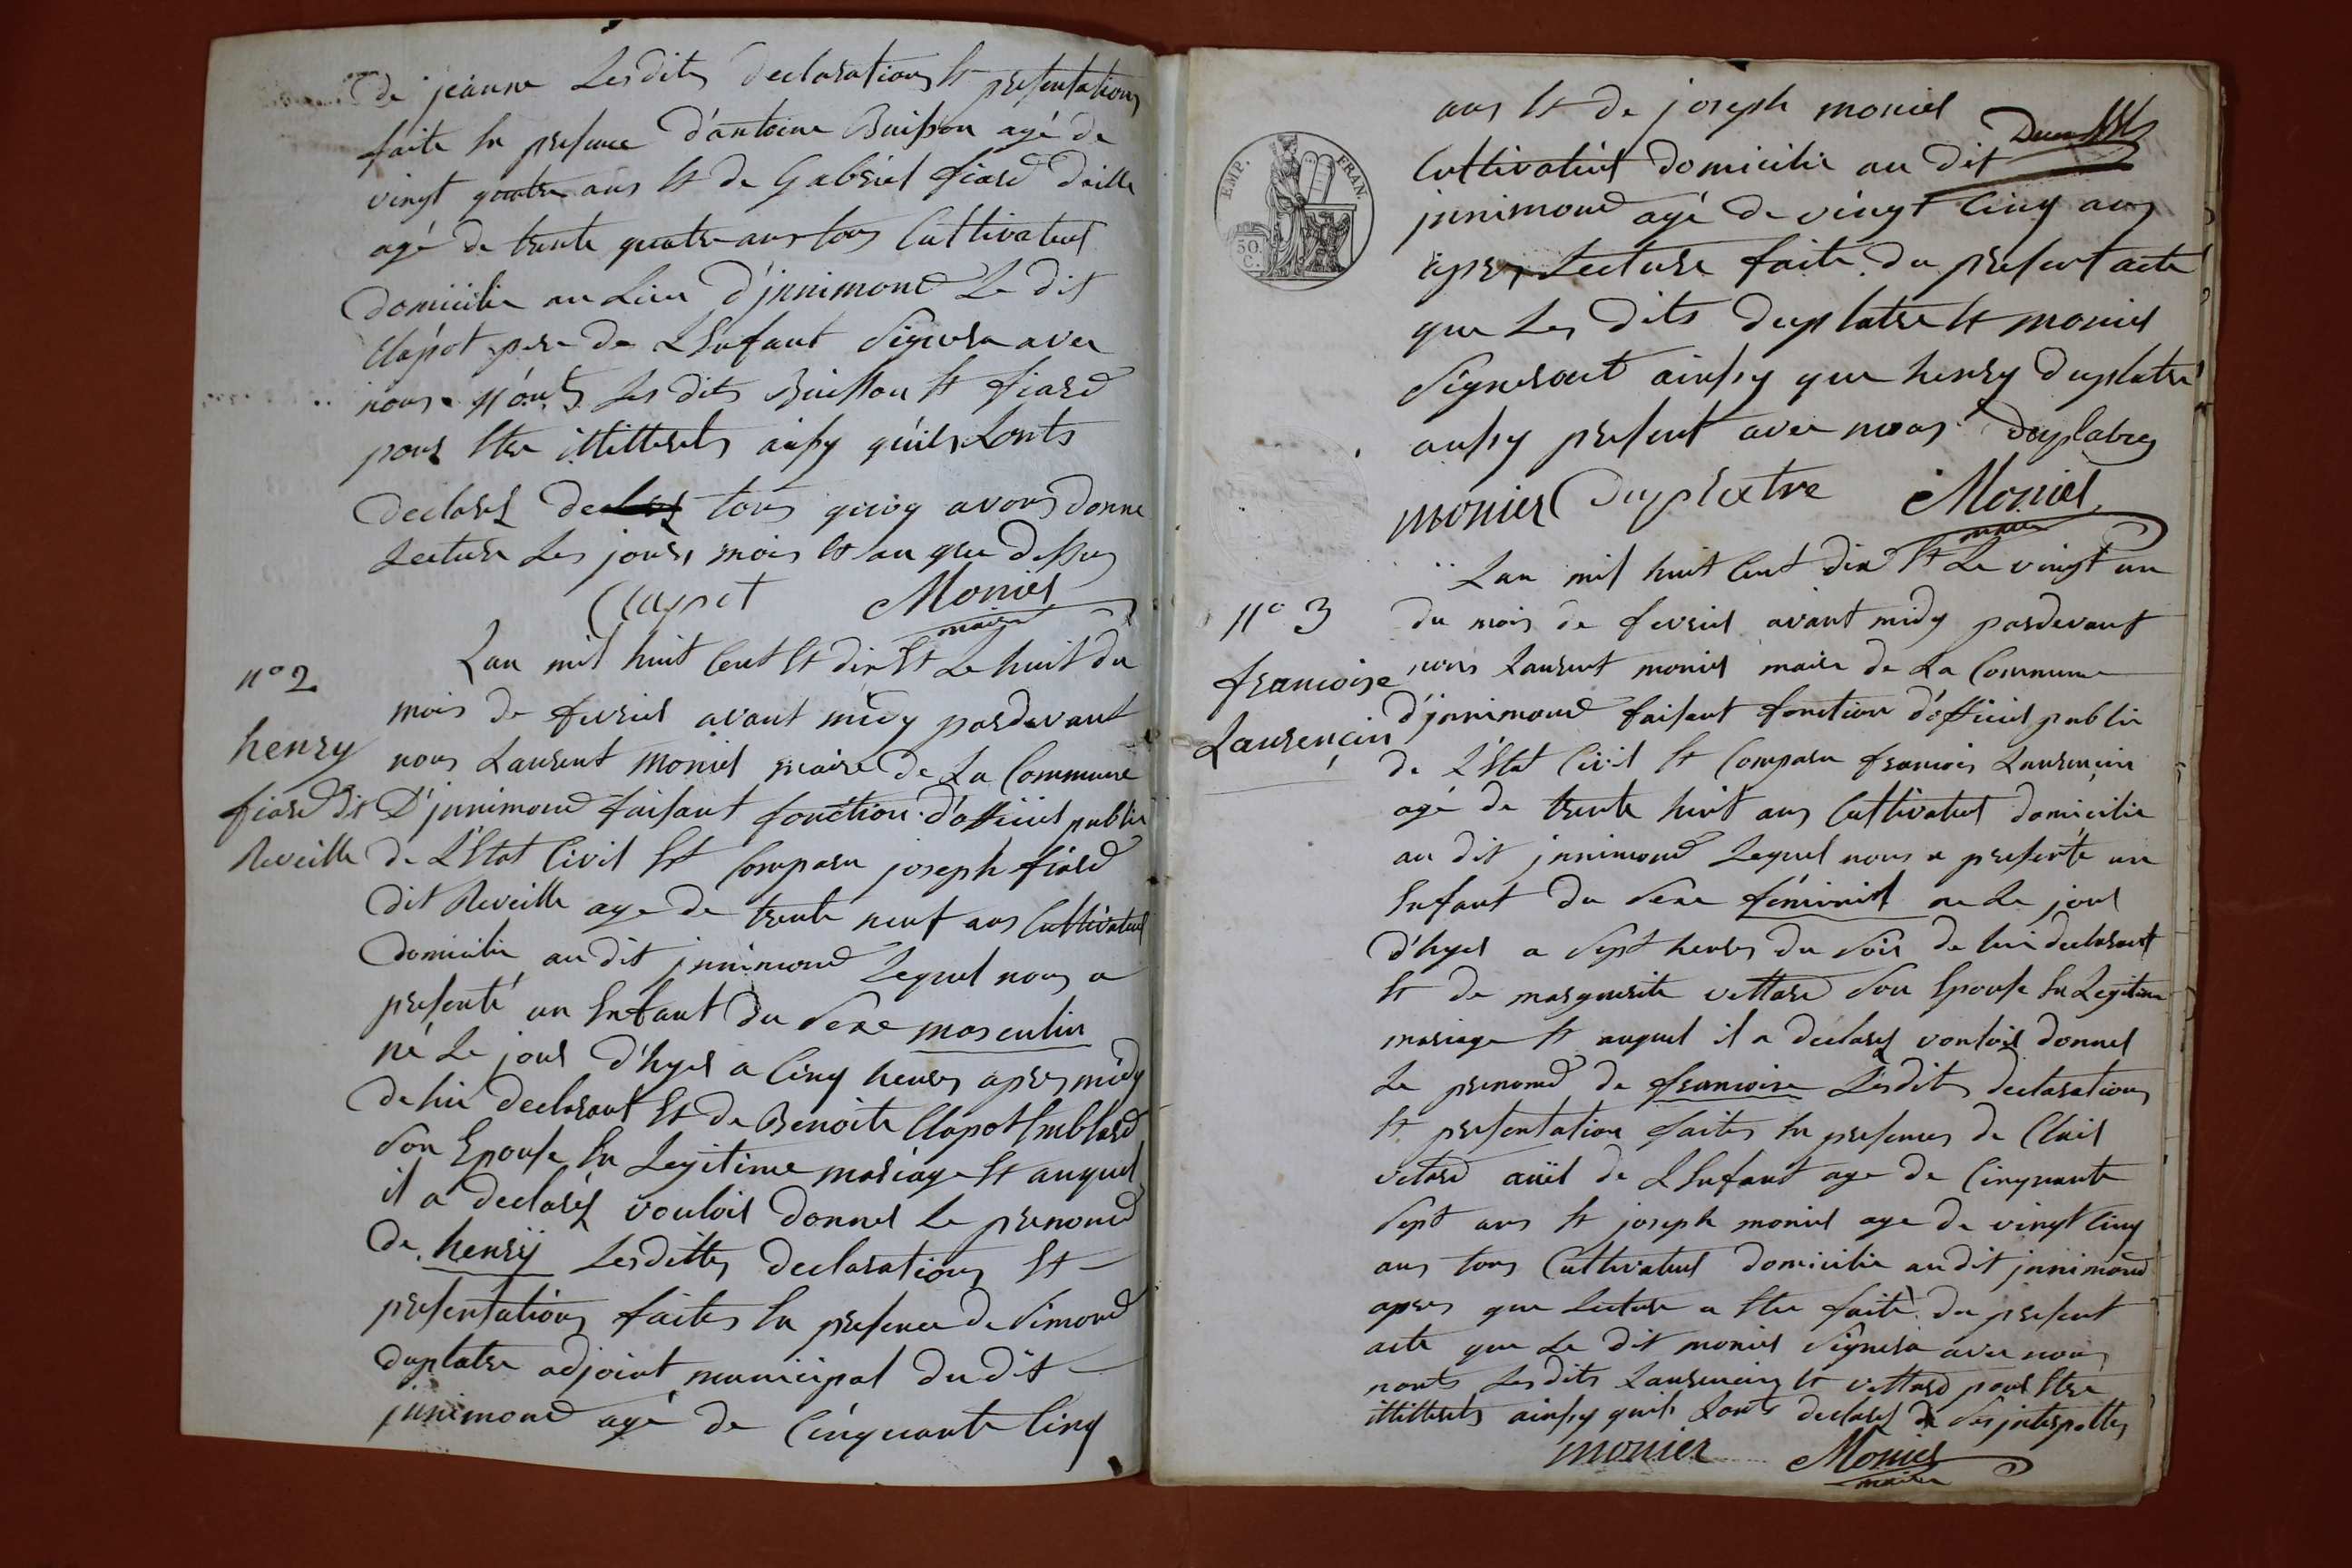 de jeanne Lesdites declarations Et presentations
faite En presence d'antoine Buisson agé de
vingt quatre ans Et de Gabriel fiard drille
agé de trente quatre ans tous Cultivateur
domicilie au Lieu d'jnnimond Le dit
Clapot pere de LEnfant Signera avec
nous nonts Les dits Buisson Et fiard
pour Etre illitterets ainsy qu'ils Lonts
declarer tous quoy avons donne
Lecture Les jours mois Et an que dessus
Clapot Monier
maire
n° 2
henry
fiard dit
Reveille
Lan mil huit Cent Et dix Et Le huit du
mois de fevrier avant midy pardevant
nous Laurent Monier maire de La Commune
D'jnnimond faisant fonction d'officier public
de L'Etat Civil Et Comparu joseph fiard
dit Reveille age de trente neuf ans Cultivateur
domicilie au dit jnnimond Lequel nous a
presenté un Enfant du Sexe masculin
né Le jour d'hyer a Cinq heures apres midy
de lui declarant Et de Benoite Clapot Emblard
Son Epouse En Legitime mariage Et auquel
il a declarér vouloir donner Le prenomd
de henrÿ Lesdittes declarations Et
presentations faites En presence de Simond
duplatre adjoint municipal dudit
jnnimond agé de Cinquante Cinq
EMP. FRAN.
50.
C.
ans Et de joseph monier
Cultivateur domicilie au dit
jnnimond agé de vingt Cinq ans
apres Lecture faite du present acte
que Les dits duplatre Et monier
Signeront ainsy que henry duplatre
aussy present avec nous duplatre
monier Duplatre Monier
maire
n° 3
francoise
Laurencin
Lan mil huit Cent dix Et Le vingt un
du mois de fevrier avant midy pardevant
nous Laurent monier maire de La Commune
d'jnnimond faisant fonction d'officier public
de L'Etat Civil Et Comparu francois Laurencin
agé de trente huit ans Cultivateur domicilie
au dit jnnimond Lequel nous a presenté un
Enfant du Sexe féminin ne Le jour
d'hyer a Sept heures du Soir de lui declarant
Et de marguerite vettard Son Epouse En Legitime
mariage Et auquel il a declarer vouloir donner
Le prenomd de francoise Lesdits declarations
Et presentation faites En presences de Clair
vetard aüel de LEnfant age de Cinquante
Sept ans Et joseph monier age de vingt Cinq
ans tous Cultivateur domicilie audit jnnimond
apres que Lecture a Ete faite du present
acte que Le dit monier Signera avec nous
nonts Lesdits Laurencin Et vettard pour Etre
illitterets ainsy quils Lonts declarer de Ses jnterpelles
monier Monier
maire